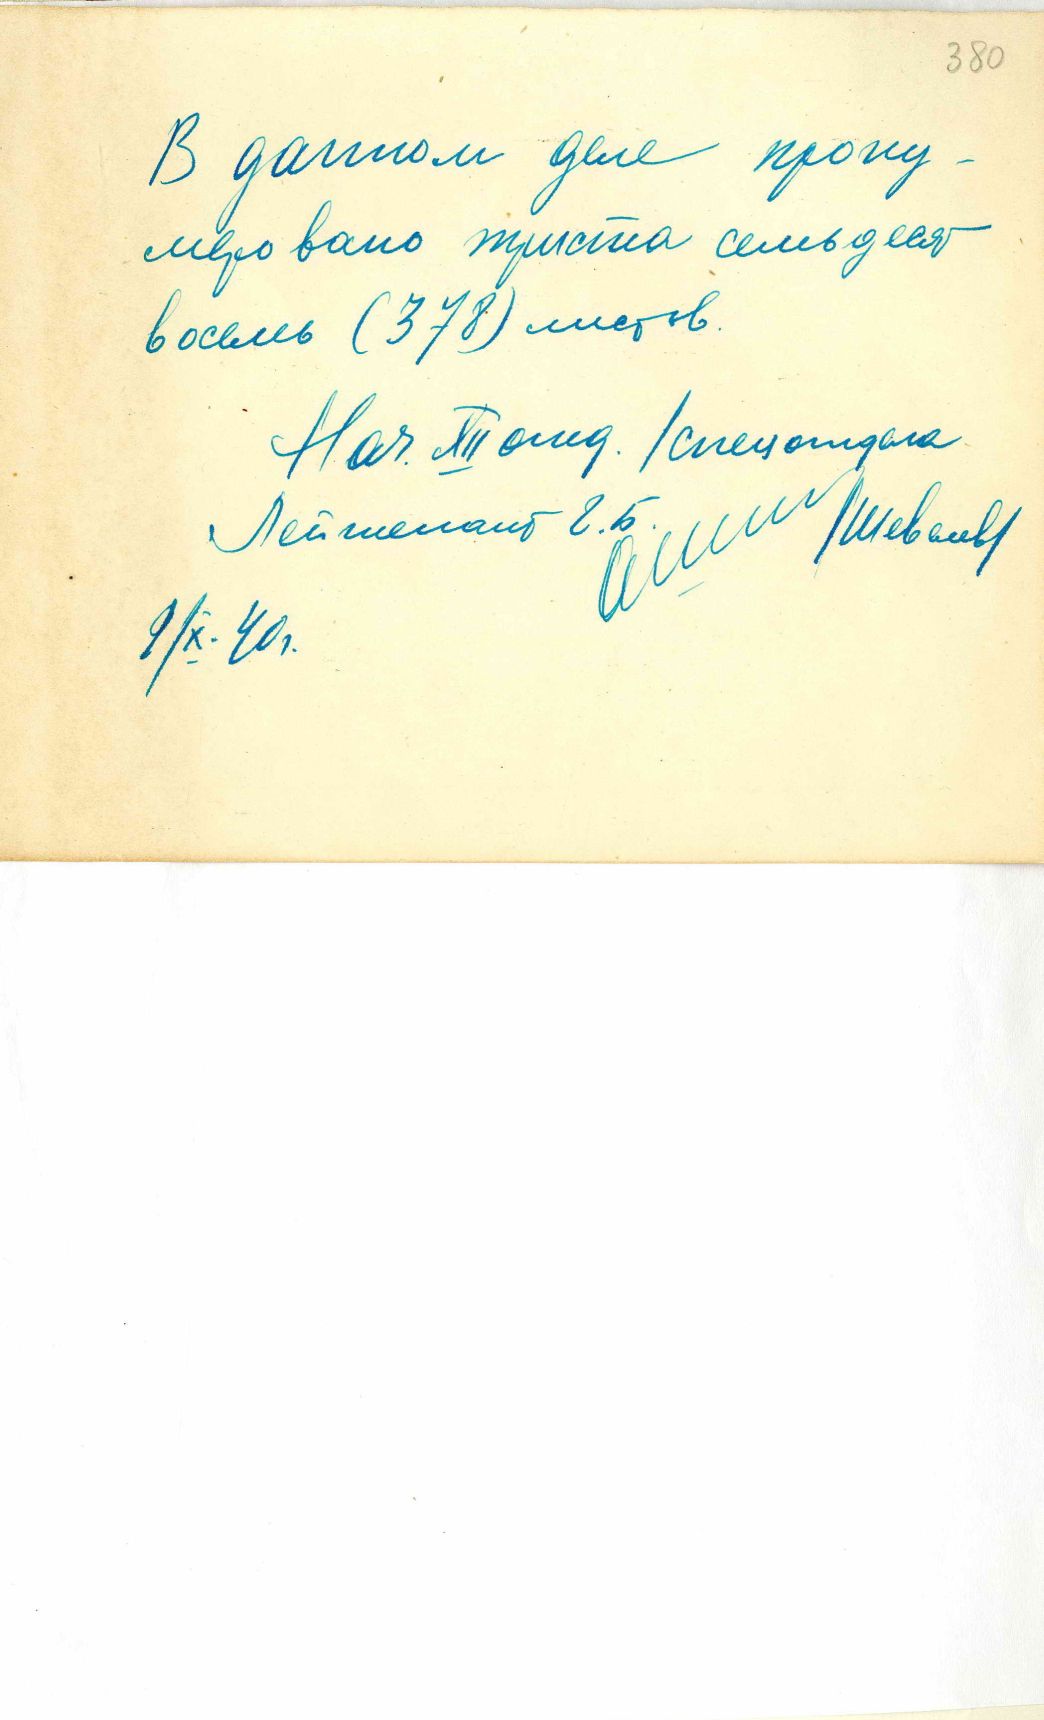 380
В данном деле прону-
меровано триста семьдесят
восемь (378) листов.
Нач. XII отд. /спецотдела
Лейтенант Г.Б. /Шевелев/
9/X-40г.